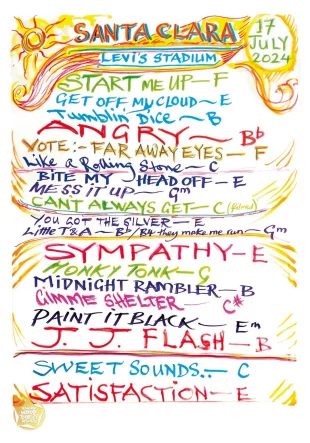 SANTA CLARA
LEVI'S STADIUM
17
JULY
2024
START ME UP - F
GET OFF MY CLOUD ~ E
Tumblin Dice ~ B
ANGRY ~ Bb
VOTE:- FAR AWAY EYES - F
Like a Rolling Stone ~ C
BITE MY HEAD OFF - E
MESS IT UP - Gm
CAN'T ALWAYS GET - C
YOU GOT THE SILVER - E
Little T&A ~ Bb/B4 they make me run ~ Gm
SYMPATHY - E
HONKY TONK - G
MIDNIGHT RAMBLER - B
GIMME SHELTER - C#
PAINT IT BLACK - Em
J. J. FLASH - B
SWEET SOUNDS.. - C
SATISFACTION - E